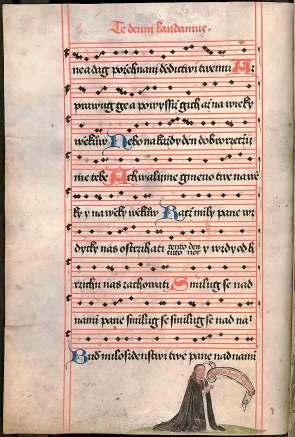 Te deum laudamus.
nea dag požehnanj dědictwi twemu A
prawug ge a powyssiž gich až na wieky
wěkuow Nebo na každy den dobrorzečij
me tobě A chwalijme gmeno twe na wě
ky y na wěky wěkuow Račz mily pane w
drzeti nas ostrzihati tento den tuto noc y wzdyck
hrzichu nas zachowati Smilug se nad
nami pane smilug se smilug se nad na
Bud milosrdenstwi twe pane nad nami